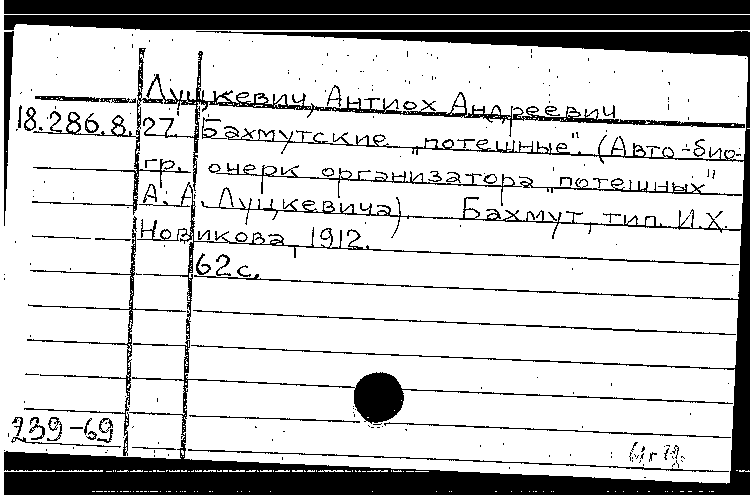 Луцкевич, Антиох Андреевич
18.286.8.27. Бахмутские „потешные". (Авто-био-
гр. очерк организатора „потешных"
А. А. Луцкевича). Бахмут, тип. И.Х.
Новикова, 1912.
62 с.
239-69